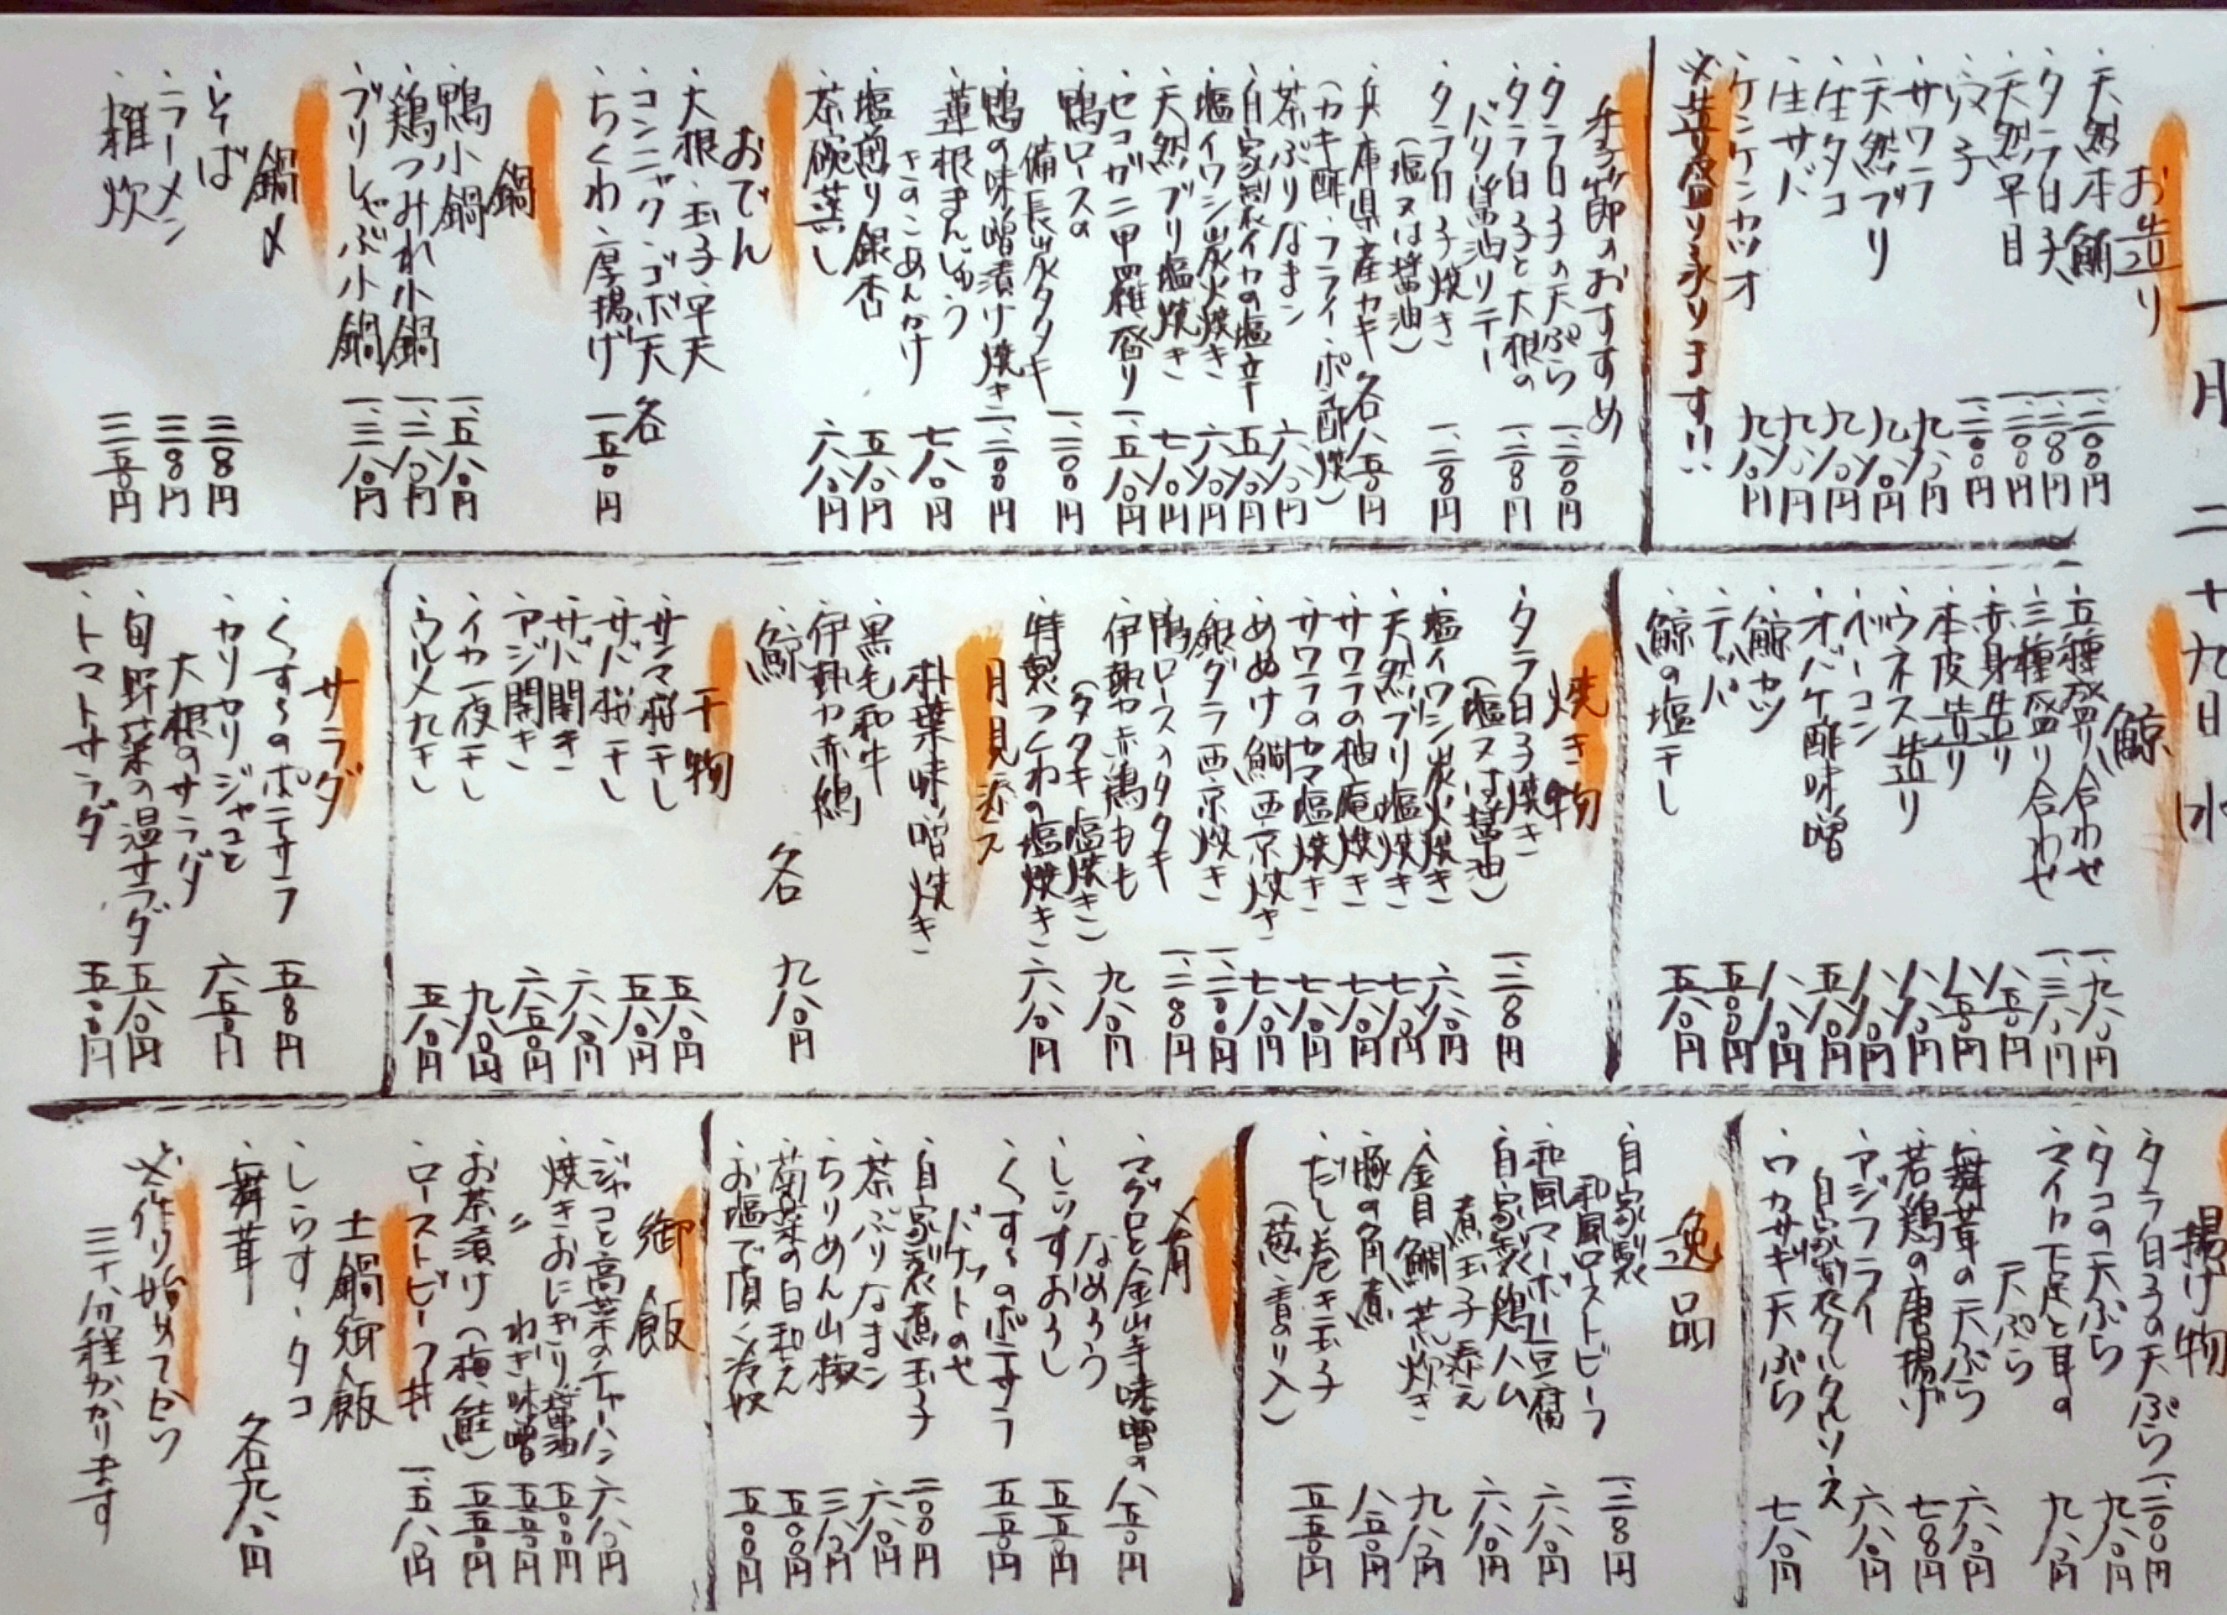 一月二十九日 水
お造り
・天然本鮪 一、二〇〇円
・タラ白子 一、二〇円
・天然平目 一、二〇〇円
・マリ子 一、二〇〇円
・サワラ 九八〇円
・天然ブリ 九八〇円
・生タコ 九八〇円
・生サバ 九八〇円
・ケンケンカツオ 九八〇円
造り盛り承ります!!
季節のおすすめ
・タラ白子の天ぷら 一、二〇〇円
・タラ白子と大根の
バタ醤油ソテー 一、二八〇円
・タラ白子焼き
(塩又は醤油) 一、二八〇円
・兵庫県産カキ 各八五〇円
(カキ酢・フライ・ポン酢焼)
・茶ぶりなまこ 六八〇円
・自家製イカの塩辛 五八〇円
・塩イワシ炭火焼き 六八〇円
・天然ブリ塩焼き 七八〇円
・セコガニ甲羅盛り 一、五八〇円
・鴨ロースの
備長炭タタキ 一、二〇〇円
・鴨の味噌漬け焼き 一、二〇〇円
・蓮根まんじゅう
きのこあんかけ 七八〇円
・塩煎り銀杏 五八〇円
・茶碗蒸し 六八〇円
おでん
・大根・玉子・平天
・コンニャク・ゴボ天 各
・ちくわ・厚揚げ 一五〇円
鍋
・鴨小鍋 一、五八〇円
・鶏つみれ小鍋 一、三八〇円
・ブリしゃぶ小鍋 一、三八〇円
鍋〆
・そば 三〇〇円
・ラーメン 三〇〇円
・雑炊 三五〇円
鯨
・五種盛り合わせ 一、九八〇円
・三種盛り合わせ 一、三八〇円
・赤身造り 八五〇円
・本皮造り 八五〇円
・ウネス造り 八八〇円
・ベーコン 八八〇円
・オバケ酢味噌 五八〇円
・鯨カツ 八八〇円
・テッパ 五〇〇円
・鯨の塩干し 五八〇円
焼き物
・タラ白子焼き
(塩又は醤油) 一、二八〇円
・塩イワシ炭火焼き 六八〇円
・天然ブリ塩焼き 七八〇円
・サワラの柚庵焼き 七八〇円
・サワラのカマ塩焼き 七八〇円
・あぬけ鯛西京焼き 七八〇円
・銀ダラ西京焼き 一、二〇〇円
・鴨ロースのタタキ 一、二八〇円
・伊勢赤鶏もも
(タタキ・塩焼き) 九八〇円
・特製つくねの塩焼き 六八〇円
月見添え
朴葉味噌焼き
・黒毛和牛
・伊勢赤鶏
・鯨 各 九八〇円
干物
・サンマ桜干し 五八〇円
・サバ桜干し 五八〇円
・サバ開き 六八〇円
・アジ開き 六五〇円
・イカ一夜干し 九八〇円
・ウルメ丸干し 五八〇円
サラダ
・くずしのポテサラ 五八〇円
・カリカリジャコと
大根のサラダ 六五〇円
・旬野菜の温サラダ 五八〇円
・トマトサラダ 五〇〇円
揚げ物
・タラ白子の天ぷら 一、二〇〇円
・タコの天ぷら 九八〇円
・マイカ下足と耳の
天ぷら 九八〇円
・舞茸の天ぷら 六八〇円
・若鶏の唐揚げ 七八〇円
・アジフライ
自家製タルタルソース 六八〇円
・ワカサギ天ぷら 七八〇円
逸品
・自家製
和風ローストビーフ 一、二八〇円
・和風マーボー豆腐 六八〇円
・自家製鶏ハム
煮玉子添え 六八〇円
・金目鯛荒炊き 九八〇円
・豚の角煮 八五〇円
・だし巻き玉子
(葱・青のり入) 五五〇円
〆肴
・マグロと金山寺味噌の
なめろう 八五〇円
・しらすおろし 五五〇円
・くずしのポテサラ
バケットのせ 五五〇円
・自家製煮玉子 二〇〇円
・茶ぶりなまこ 六八〇円
・ちりめん山椒 三八〇円
・菊菜の白和え 五〇〇円
・お塩で頂く冷奴 五〇〇円
御飯
・ジャコと高菜のチャーハン 六八〇円
・焼きおにぎり醤油 五〇〇円
・〃 ねぎ味噌 五五〇円
・お茶漬け(梅・鮭) 五五〇円
・ローストビーフ丼 一、五八〇円
土鍋御飯
・しらす・タコ
・舞茸 各九八〇円
※作り始めてから
三十分程かかります